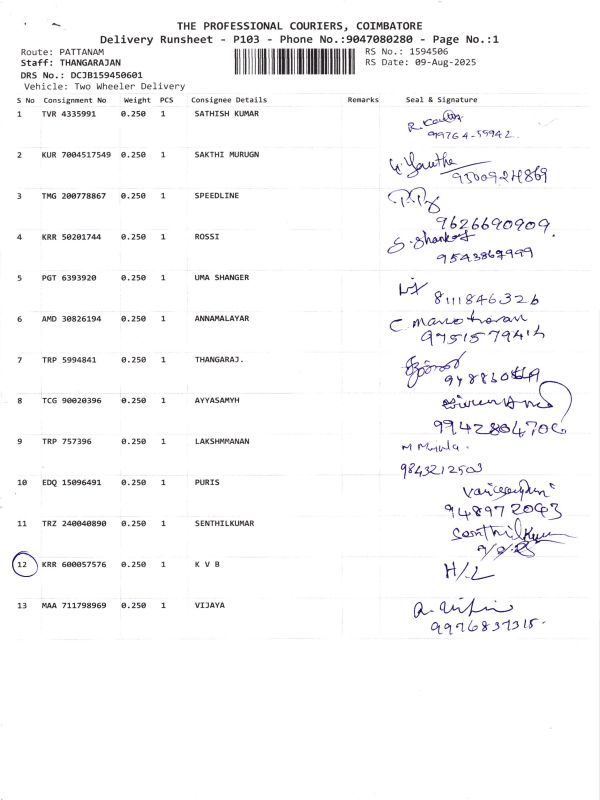 THE PROFESSIONAL COURIERS, COIMBATORE
Delivery Runsheet - P103 - Phone No.:9047080280 - Page No.:1
Route: PATTANAM RS No.: 1594506
Staff: THANGARAJAN RS Date: 09-Aug-2025
DRS No.: DCJB159450601
Vehicle: Two Wheeler Delivery
S No Consignment No Weight PCS Consignee Details Remarks Seal & Signature
1 TVR 4335991 0.250 1 SATHISH KUMAR
99764-59942
2 KUR 7004517549 0.250 1 SAKTHI MURUGN
9500924869
3 TMG 200778867 0.250 1 SPEEDLINE
9626690909
4 KRR 50201744 0.250 1 ROSSI S. Shankar
5 PGT 6393920 0.250 1 UMA SHANGER
8111846326
6 AMD 30826194 0.250 1 ANNAMALAYAR C manoharan
7 TRP 5994841 0.250 1 THANGARAJ.
8 TCG 90020396 0.250 1 AYYASAMYH
9942804706
9 TRP 757396 0.250 1 LAKSHMMANAN
9843212503
10 EDQ 15096491 0.250 1 PURIS
11 TRZ 240040890 0.250 1 SENTHILKUMAR Senthilkumar
12 KRR 600057576 0.250 1 K V B H/L
13 MAA 711798969 0.250 1 VIJAYA
9976837315